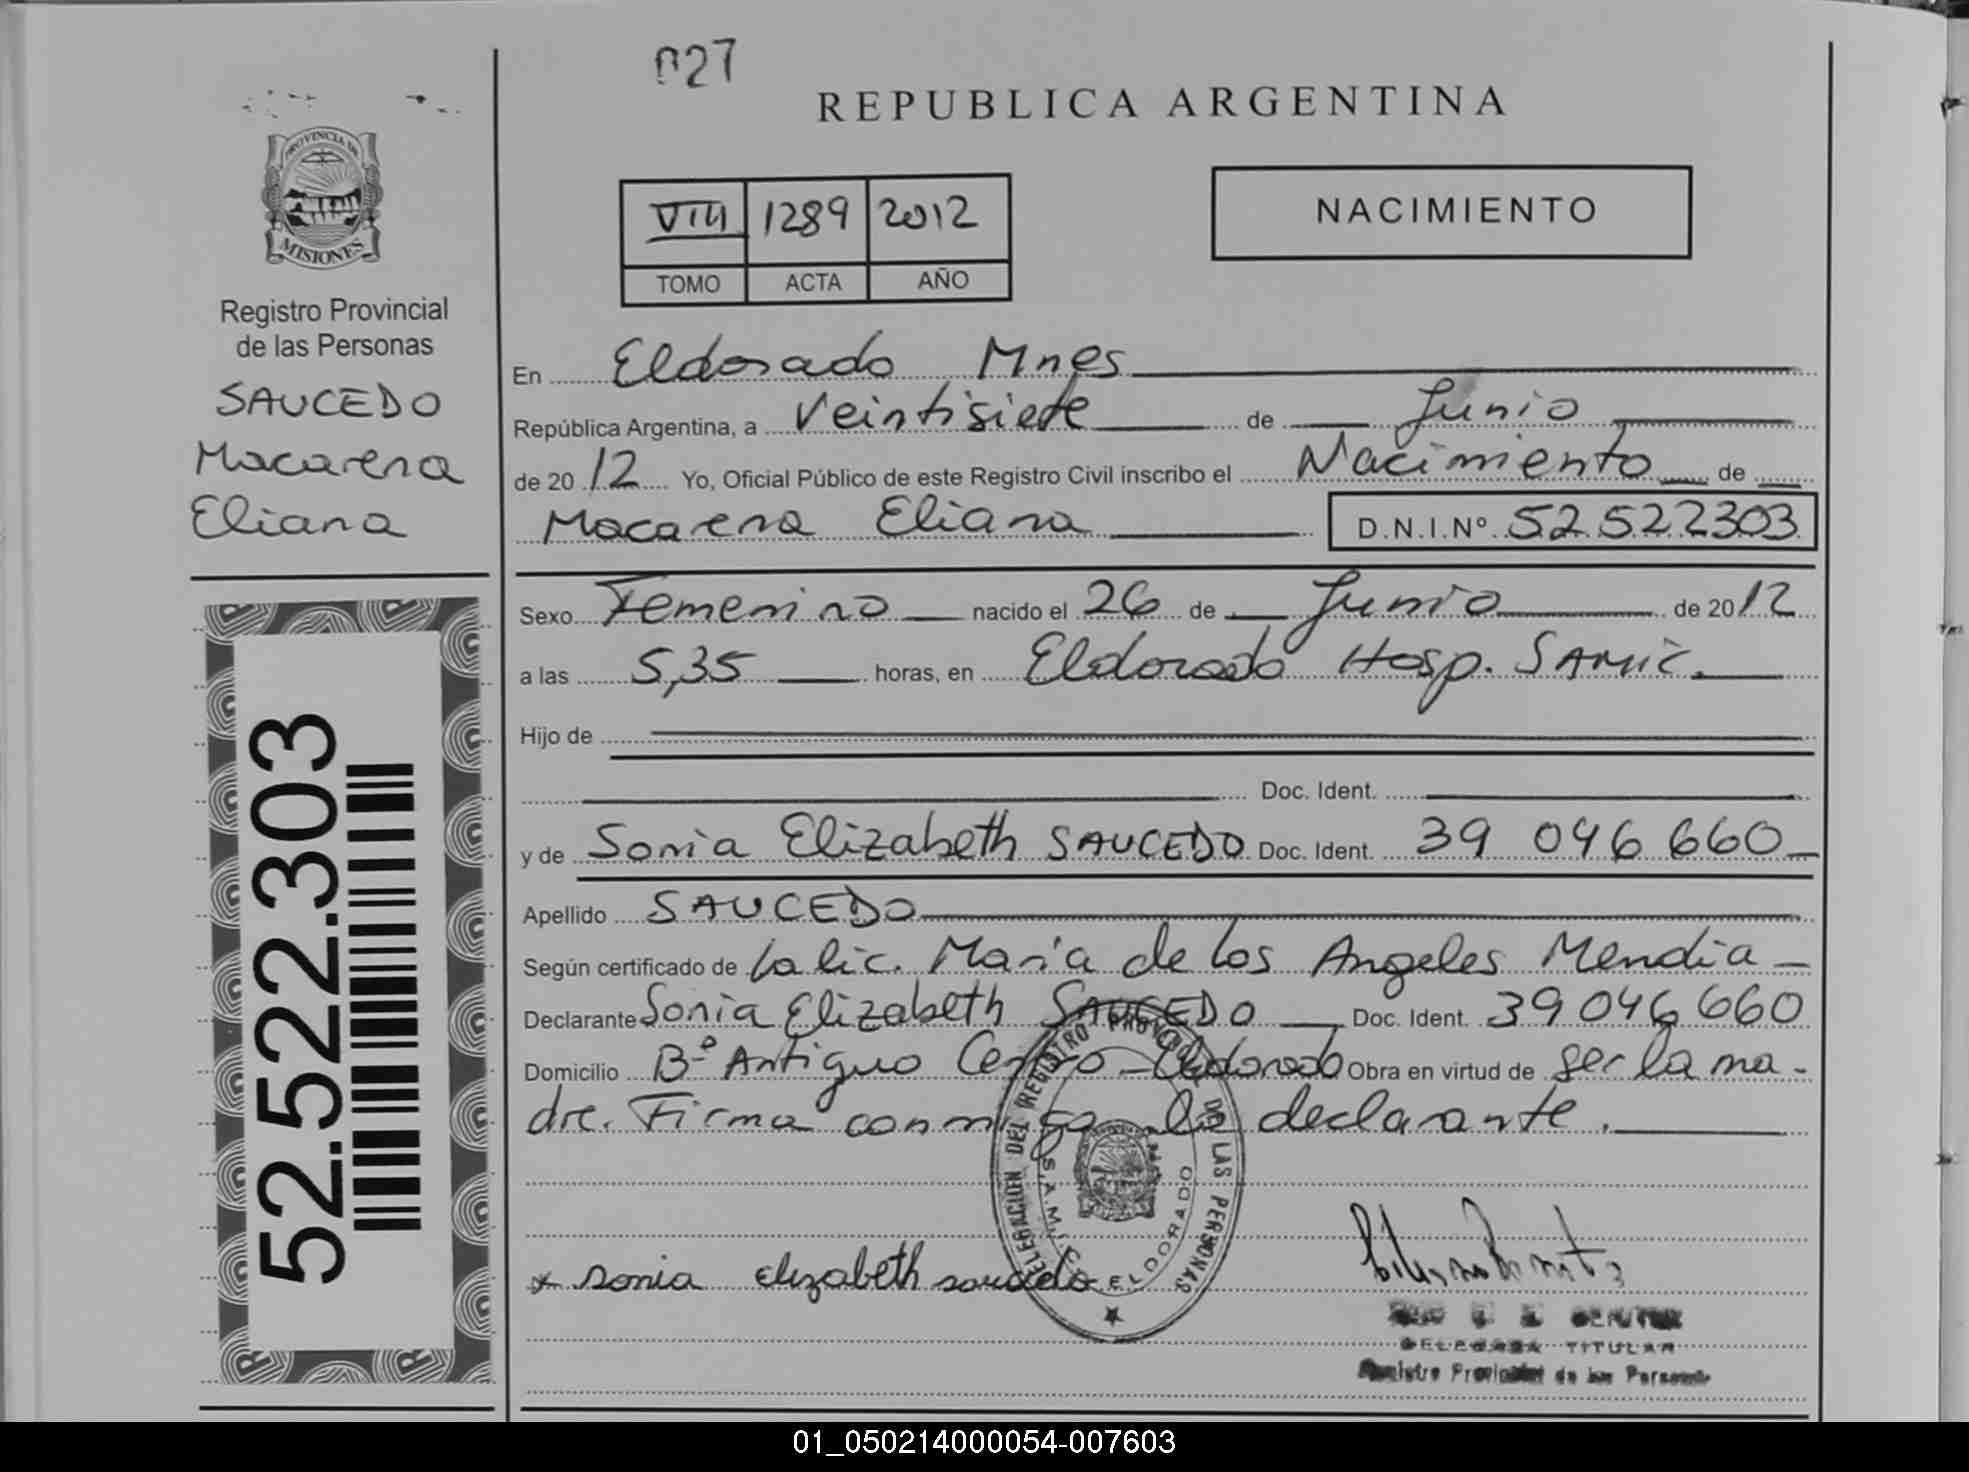 027
REPUBLICA ARGENTINA
PROVINCIA DE
MISIONES
Registro Provincial
de las Personas
SAUCEDO
Macarena
Eliana
VIII 1289 2012
TOMO ACTA AÑO
NACIMIENTO
En Eldorado Mnes
República Argentina, a Veintisiete de Junio
de 2012 Yo, Oficial Público de este Registro Civil inscribo el Nacimiento de
Macarena Eliana D.N.I.Nº 52522303
Sexo Femenino nacido el 26 de Junio de 2012
a las 5,35 horas, en Eldorado Hosp. SAMIC.
Hijo de
Doc. Ident.
y de Sonia Elizabeth SAUCEDO Doc. Ident. 39 046 660
Apellido SAUCEDO
Según certificado de La lic. Maria de Los Angeles Mendia
Declarante Sonia Elizabeth SAUCEDO Doc. Ident. 39 046 660
Domicilio Bº Antiguo Centro - Eldorado Obra en virtud de ser la ma-
dre. Firma conmigo la declarante.
52.522.303
DELEGACION DEL REGISTRO PROVINCIAL DE LAS PERSONAS
S.A.M.I.C. ELDORADO
x sonia elizabeth saucedo
DELEGADA TITULAR
Registro Provincial de las Personas
01_050214000054-007603